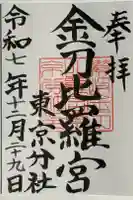 奉拝
金刀比羅宮
東京分社
令和七年十二月二十九日